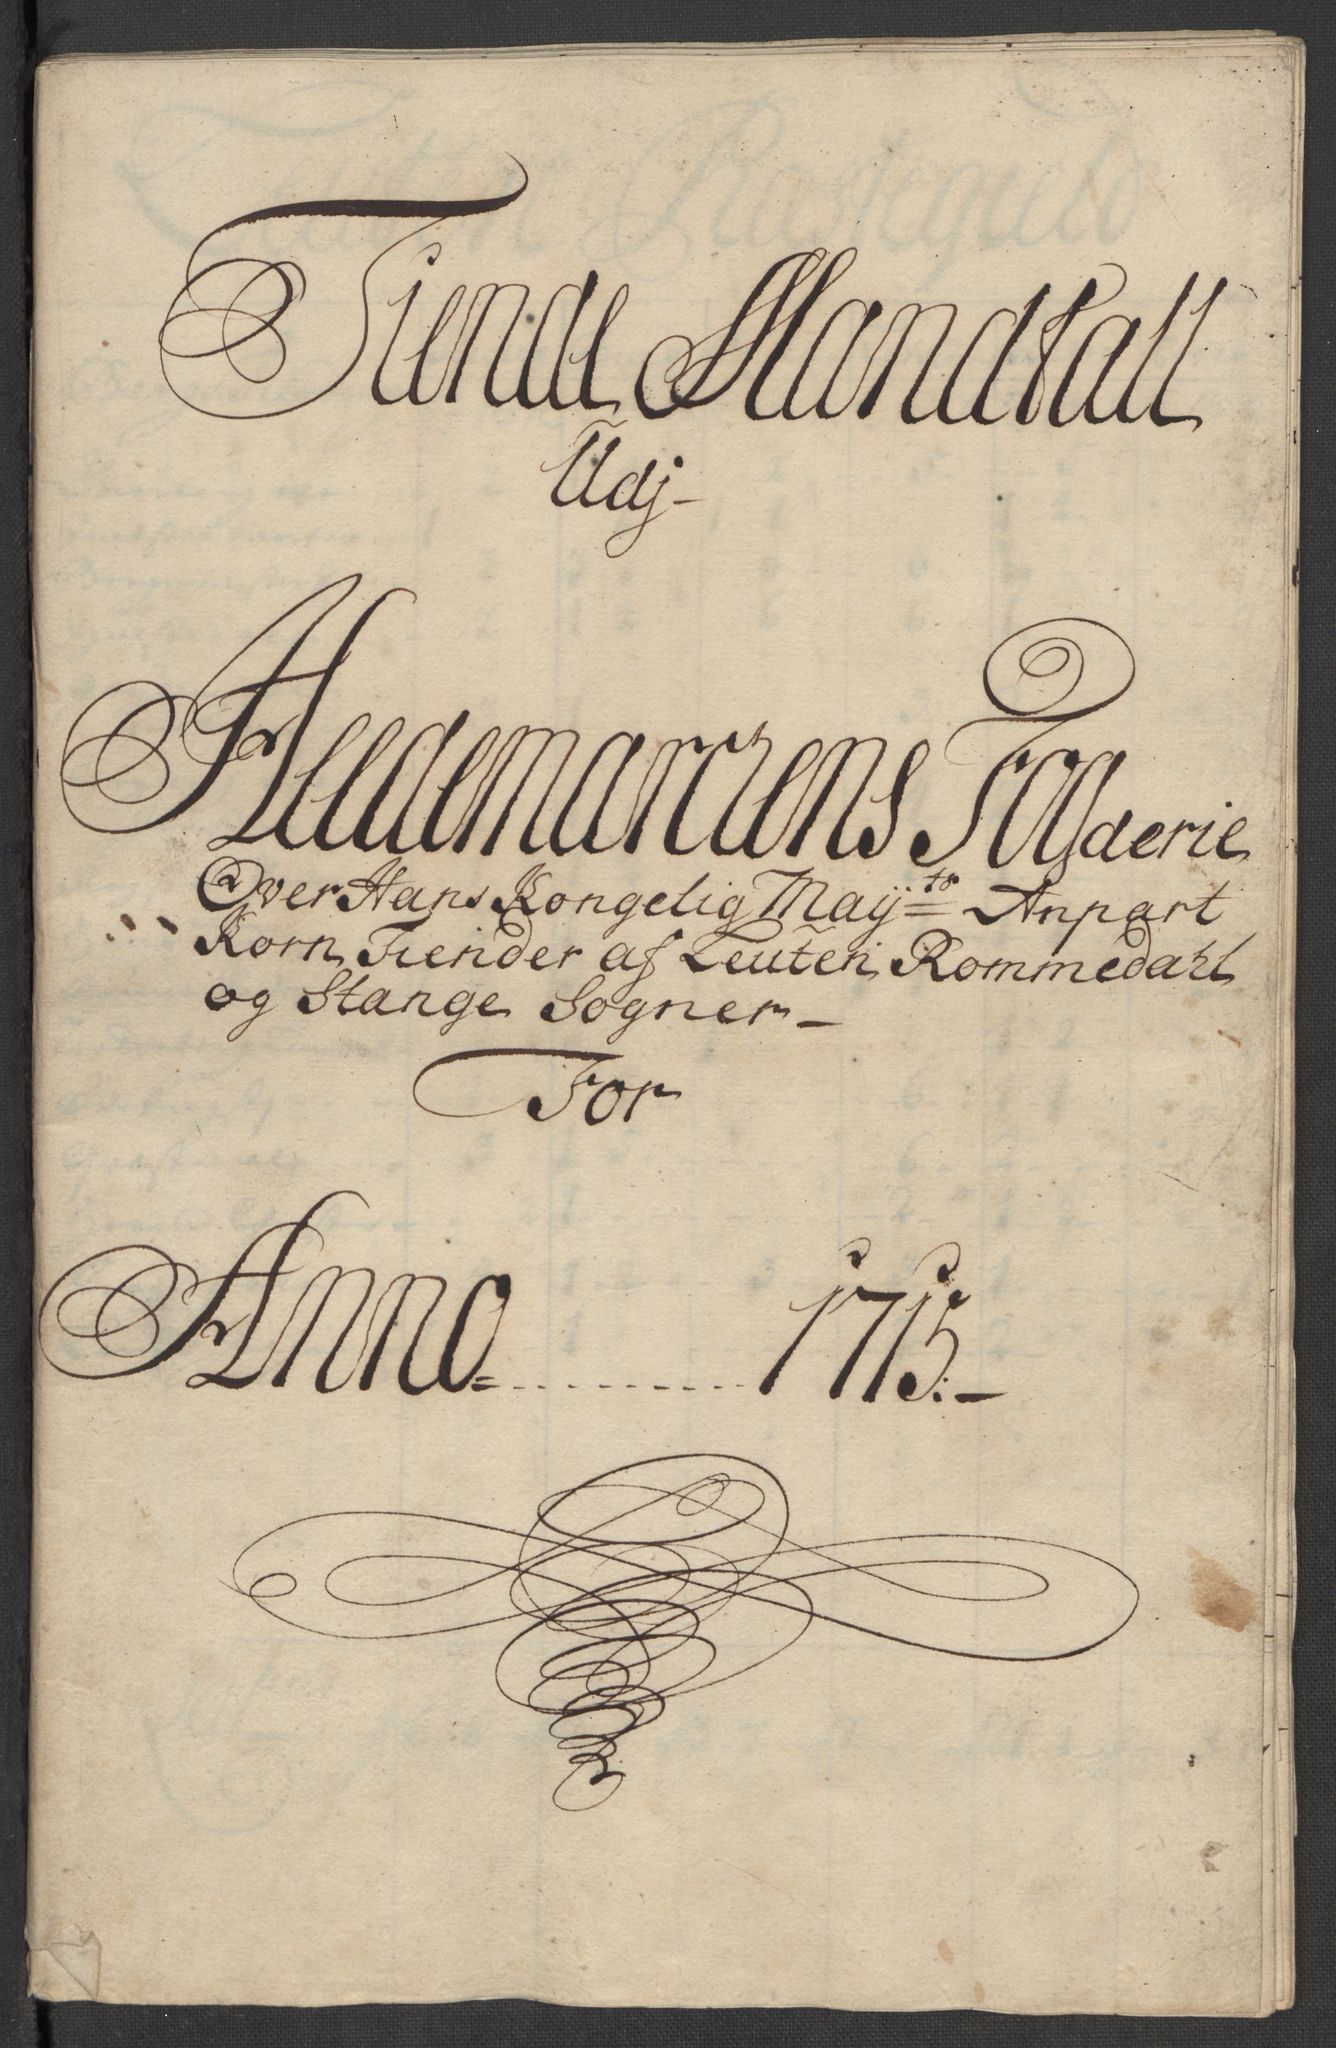 Tiende Mandtall
Udj-
Hedemarchens Fogderie
Over Hans Kongelig Mayjts Anpart
Korn Tiender af Leuten, Rommedahl
og Stange Sogner-
For
Anno= ......... 1715.-